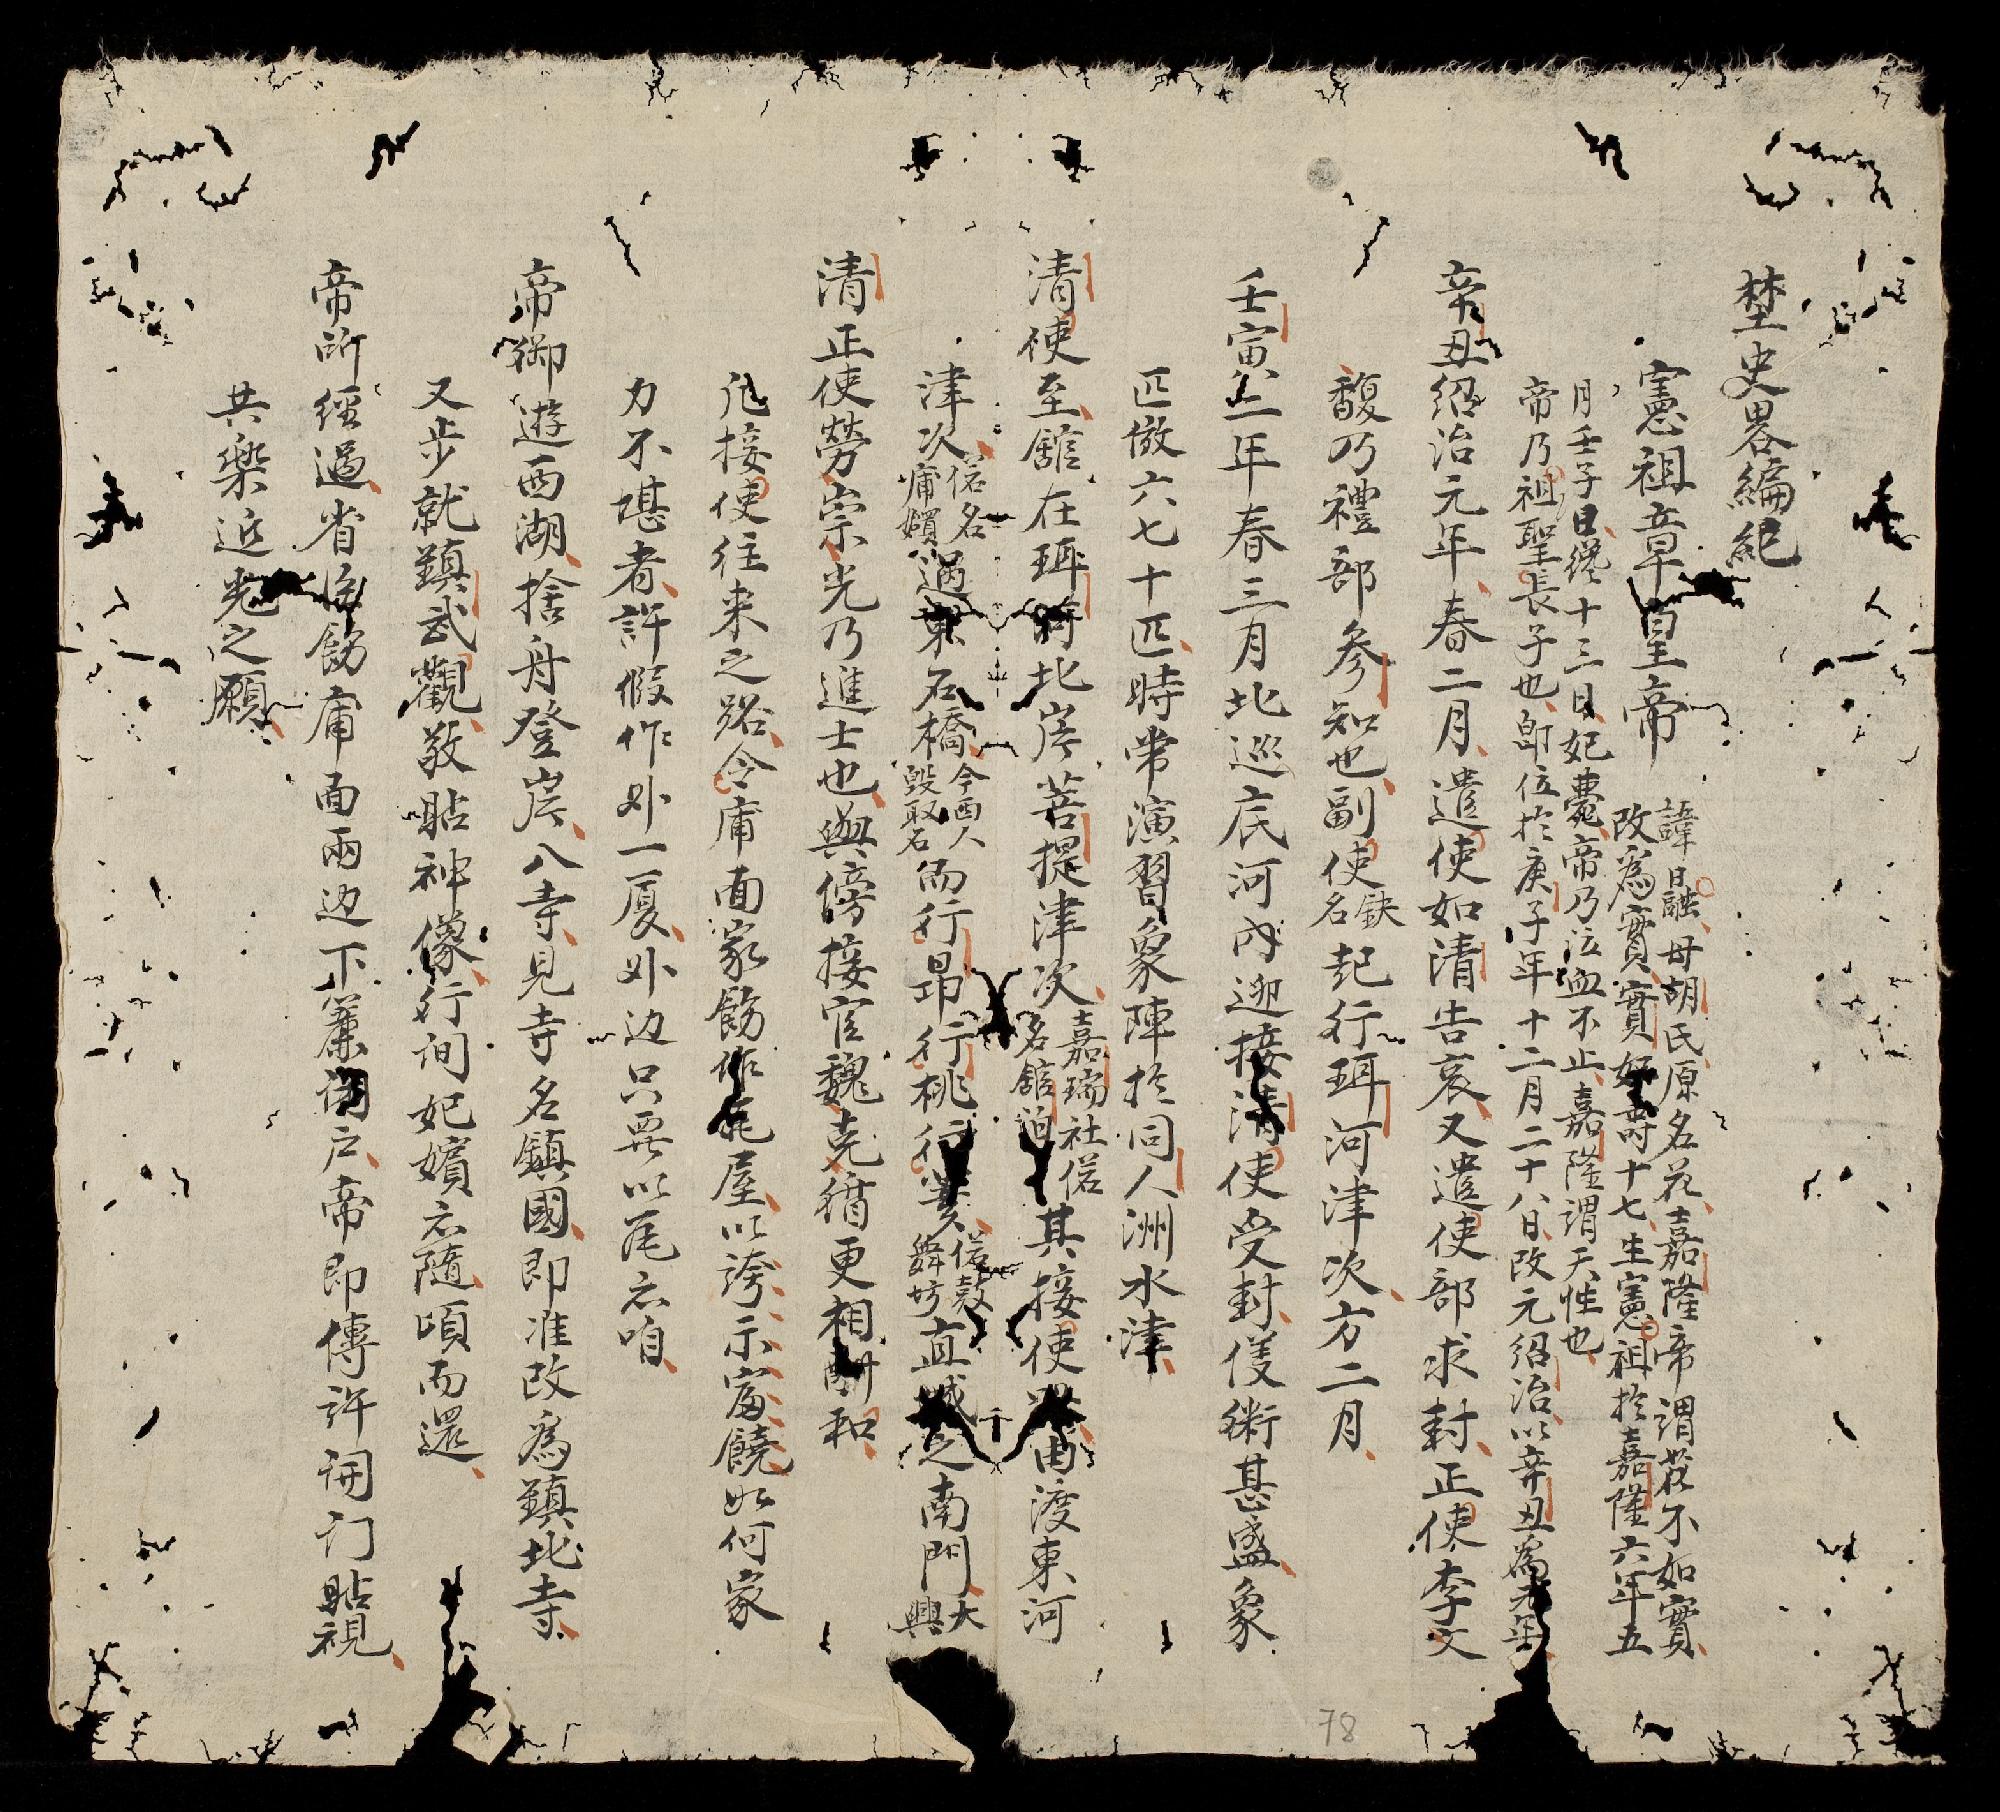 埜史畧編紀
憲祖章皇帝 諱曰融母胡氏原名花嘉隆帝謂花不如實
改爲實實好壽十七生憲祖於嘉隆六年五
月壬子日纔十三日妃薨帝乃泣血不止嘉隆謂天性也
帝乃祖聖長子也卽位於庚子年十二月二十八日改元紹治以辛丑爲元年
辛丑紹治元年春二月遣使如清告哀又遣使部求封正使李文
馥乃禮部參知也副使缺名起行珥河津次方二月
壬寅二年春三月北巡底河內迎接清使受封仗衛甚盛象
匹倣六七十匹時常演習象陣於同人洲水津
清使至舘在珥河北岸菩提津次嘉瑞社偌名舘泊其接使由渡東河
津次偌名庯嬪過東石橋今西人毀取石而行昻行桃行偌鼓舞坊直城之南門大興
清正使勞崇光乃進士也與傍接官魏克循更相酬和
凢接使往来之路令庯面家餙作瓦屋以誇示富饒如何家
力不堪者許假作外一厦外边只要以瓦䒨咱
帝御遊西湖捨舟登岸入寺見寺名鎮國即准改爲鎮北寺
又步就鎮武觀敬貼神像行间妃嬪䒨隨頃而還
帝所經過省庯餙庯面兩边下簾闭户帝即傳許闲门貼視
共樂近光之願
78